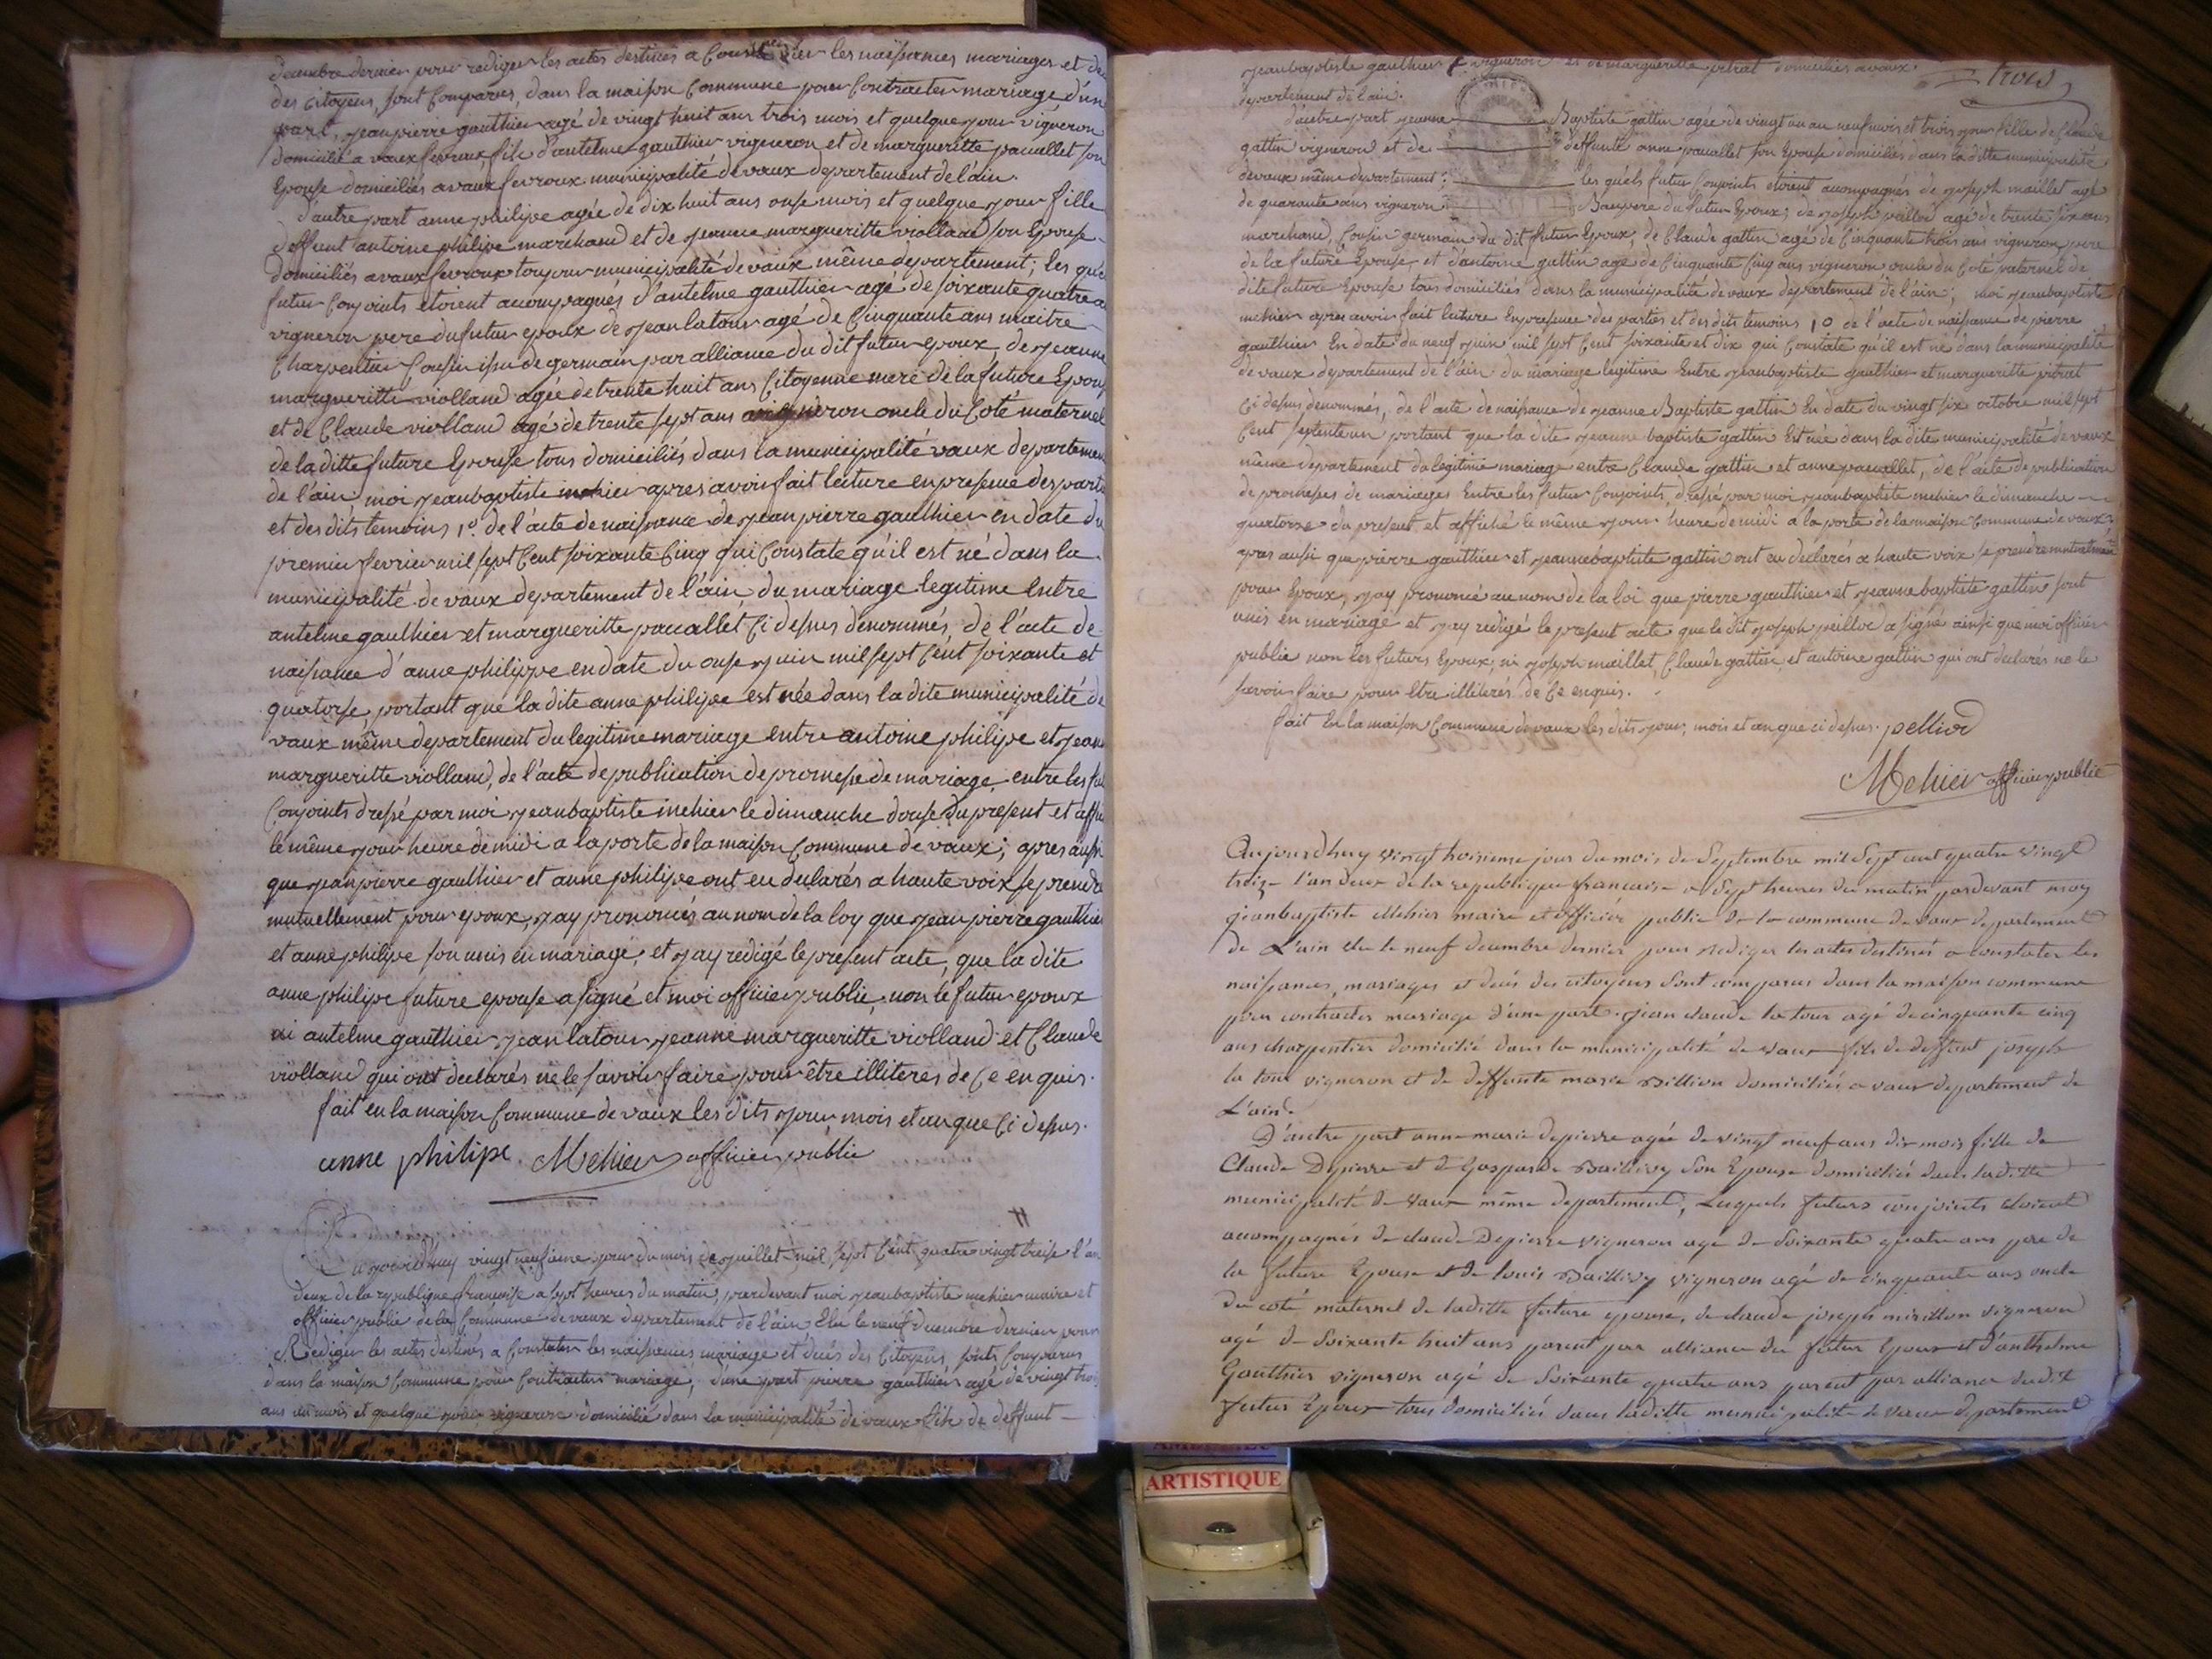 decembre dernier pour rediger les actes destinés a Constater les naissances mariages et de
des Citoyens, sont Comparus, dans la maison Commune pour Contracter mariage d'une
part, jean pierre gauthier agé de vingt huit ans trois mois et quelque jour vigneron
domicilié a vaux fevroux, fils d'antelme gauthier vigneron et de margueritte pacallet son
Epouse domiciliés a vaux fevroux municipalité de vaux departement de l'ain.
d'autre part anne philipe agée de dix huit ans onse mois et quelque jour fille
deffunt antoine philipe marchand et de jeanne margueritte violland son Epouse
domiciliés a vaux fevroux toujour municipalité de vaux même departement; les quels
futur Conjoints etoient acompagnés d'antelme gauthier agé de soixante quatre a
vigneron pere du futur epoux de jean latour agé de Cinquante ans maitre
Charpentier Cousin issu de germain par alliance du dit futur epoux, de jeanne
margueritte violland agée de trente huit ans Citoyenne mere de la future Epouse
et de Claude violland agé de trente sept ans vigneron oncle du Coté maternel
de la ditte future Epouse tous domiciliés dans la municipalité vaux departement
de l'ain moi jean baptiste mehier apres avoir fait lecture en presence des parties
et des dits temoins 1º. de l'acte de naissance de jean pierre gauthier en date du
premier fevrier mil sept Cent soixante Cinq qui Constate qu'il est né dans la
municipalité de vaux departement de l'ain du mariage legitime Entre
antelme gauthier et margueritte pacallet Ci desus denommés, de l'acte de
naissance d'anne philippe en date du onse juin mil sept Cent soixante et
quatorse, portant que la dite anne philipe est née dans la dite municipalité de
vaux même departement du legitime mariage entre antoine philipe et jeanne
margueritte violland, de l'acte de publication de promesse de mariage entre les fu
Conjoints dressé par moi jean baptiste mehier le dimanche douse du present et affi
le même jour heure de midi a la porte de la maison Commune de vaux; apres aussi
que jean pierre gauthier et anne philipe ont eu declarés a haute voix se prendre
mutuellement pour epoux, j'ay prononcés au nom de la loy que jean pierre gauthier
et anne philipe son unis en mariage, et j'ay redigé le present acte, que la dite
anne philipe future epouse a signé et moi officier public, non le futur epoux
ni antelme gauthier jean latour jeanne margueritte violland et Claude
violland qui ont declarés ne le savoir faire pour être illiteres de Ce enquis.
fait en la maison Commune de vaux les dits jour, mois et an que Ci desus.
anne philipe Mehier officier public
Aujourd'huy vingt neufieme jour du mois de juillet mil sept Cent quatre vingt treise l'an
deux de la republique françoise a sept heures du matin, pardevant moi jean baptiste mehier maire et
officier public de la Commune de vaux departement de l'ain Elu le neuf decembre dernier pour
Rediger les actes destinés a Constater les naissances mariage et decés des Citoyens, sont Comparus
dans la maison Commune pour Contracter mariage, d'une part pierre gauthier agé de vingt trois
ans un mois et quelque jour vigneron domicilié dans la municipalité de vaux fils de deffunt
jean baptiste gauthier vigneron et de margueritte pitrat domiciliés a vaux
trois
departement de l'ain.
d'autre part jeanne Baptiste gattin agée de vingt un an neuf mois et trois jour fille de Claude
gattin vigneron et de deffunte anne pacallet son Epouse domiciliés dans la ditte municipalité
de vaux même departement; les quels futur Conjoints etoient acompagnés de joseph maillet agé
de quarante ans vigneron Beaupere du futur Epoux; de joseph agé de trente six ans
marchand, Cousin germain du dit futur Epoux, de Claude gattin agé de Cinquante trois ans vigneron pere
de la future Epouse, et d'antoine gattin agé de Cinquante Cinq ans vigneron oncle du Coté paternel de
dite future Epouse tous domiciliés dans la municipalité de vaux departement de l'ain; moi jean baptiste
mehier apres avoir fait lecture En presence des parties et des dits temoins 1º de l'acte de naissance de pierre
gauthier En date du neuf juin mil sept Cent soixante et dix qui Constate qu'il est né dans la municipalité
de vaux departement de l'ain du mariage legitime Entre jean baptiste gauthier et margueritte pitrat
Ci desus denommés, de l'acte de naissance de jeanne Baptiste gattin En date du vingt six octobre mil sept
Cent septente un portant que la dite jeanne baptiste gattin Est née dans la dite municipalité de vaux
même departement du legitime mariage entre Claude gattin et anne pacallet, de l'acte de publication
de promesses de mariages Entre les futur Conjoints, dressé par moi jean baptiste mehier le dimanche
quatorse du present et affiché le même jour heure de midi a la porte de la maison Commune de vaux
apres aussi que pierre gauthier et jeanne baptiste gattin ont eu declarés a haute voix se prendre mutuelment
pour Epoux, j'ay prononcé au nom de la loi que pierre gauthier et jeanne baptiste gattin sont
unis en mariage et j'ay redigé le present acte que le dit joseph peilloe a signé ainsi que moi officier
public non les futurs Epoux, ni joseph maillet, Claude gattin et antoine gattin qui ont declarés ne le
savoir faire pour Etre illiterés de Ce enquis.
fait En la maison Commune de vaux les dits jour, mois et an que ci desus.
Mehier officier public
Aujourdhuy vingt troisieme jour du mois de Septembre mil Sept cent quatre vingt
treize l'an deux de la republique francaise a Sept heures du matin pardevant moy
jean baptiste Mehier maire et officier public de la commune de vaux departement
de L'ain elu le neuf decembre dernier pour rediger les actes destinés a constater les
naissances, mariages et decés des citoyens Sont comparus dans la maison commune
pour contracter mariage d'une part jean claude la tour agé de cinquante cinq
ans charpentier domicilié dans la municipalité de vaux fils de deffunt joseph
la tour vigneron et de deffunte marie Billion domiciliés a vaux departement de
L'ain.
D'autre part anne marie depierre agée de vingt neuf ans dix mois fille de
Claude Depierre et de Gasparde Baillivy Son Epouse domiciliés dans laditte
municipalité de vaux même departement, Lesquels futurs conjoints etoient
accompagnés de claude Depierre vigneron agé de Soixante quatre ans pere de
la future Epouse et de louis Baillivy vigneron agé de cinquante ans oncle
du coté maternel de laditte future epouse, de claude joseph vigneron
agé de Soixante huit ans parent par alliance du futur Epoux et d'anthelme
Gauthier vigneron agé de Soixante quatre ans parent par alliance dudit
futur Epoux tous domiciliés dans laditte municipalité de vaux departement
ARTISTIQUE